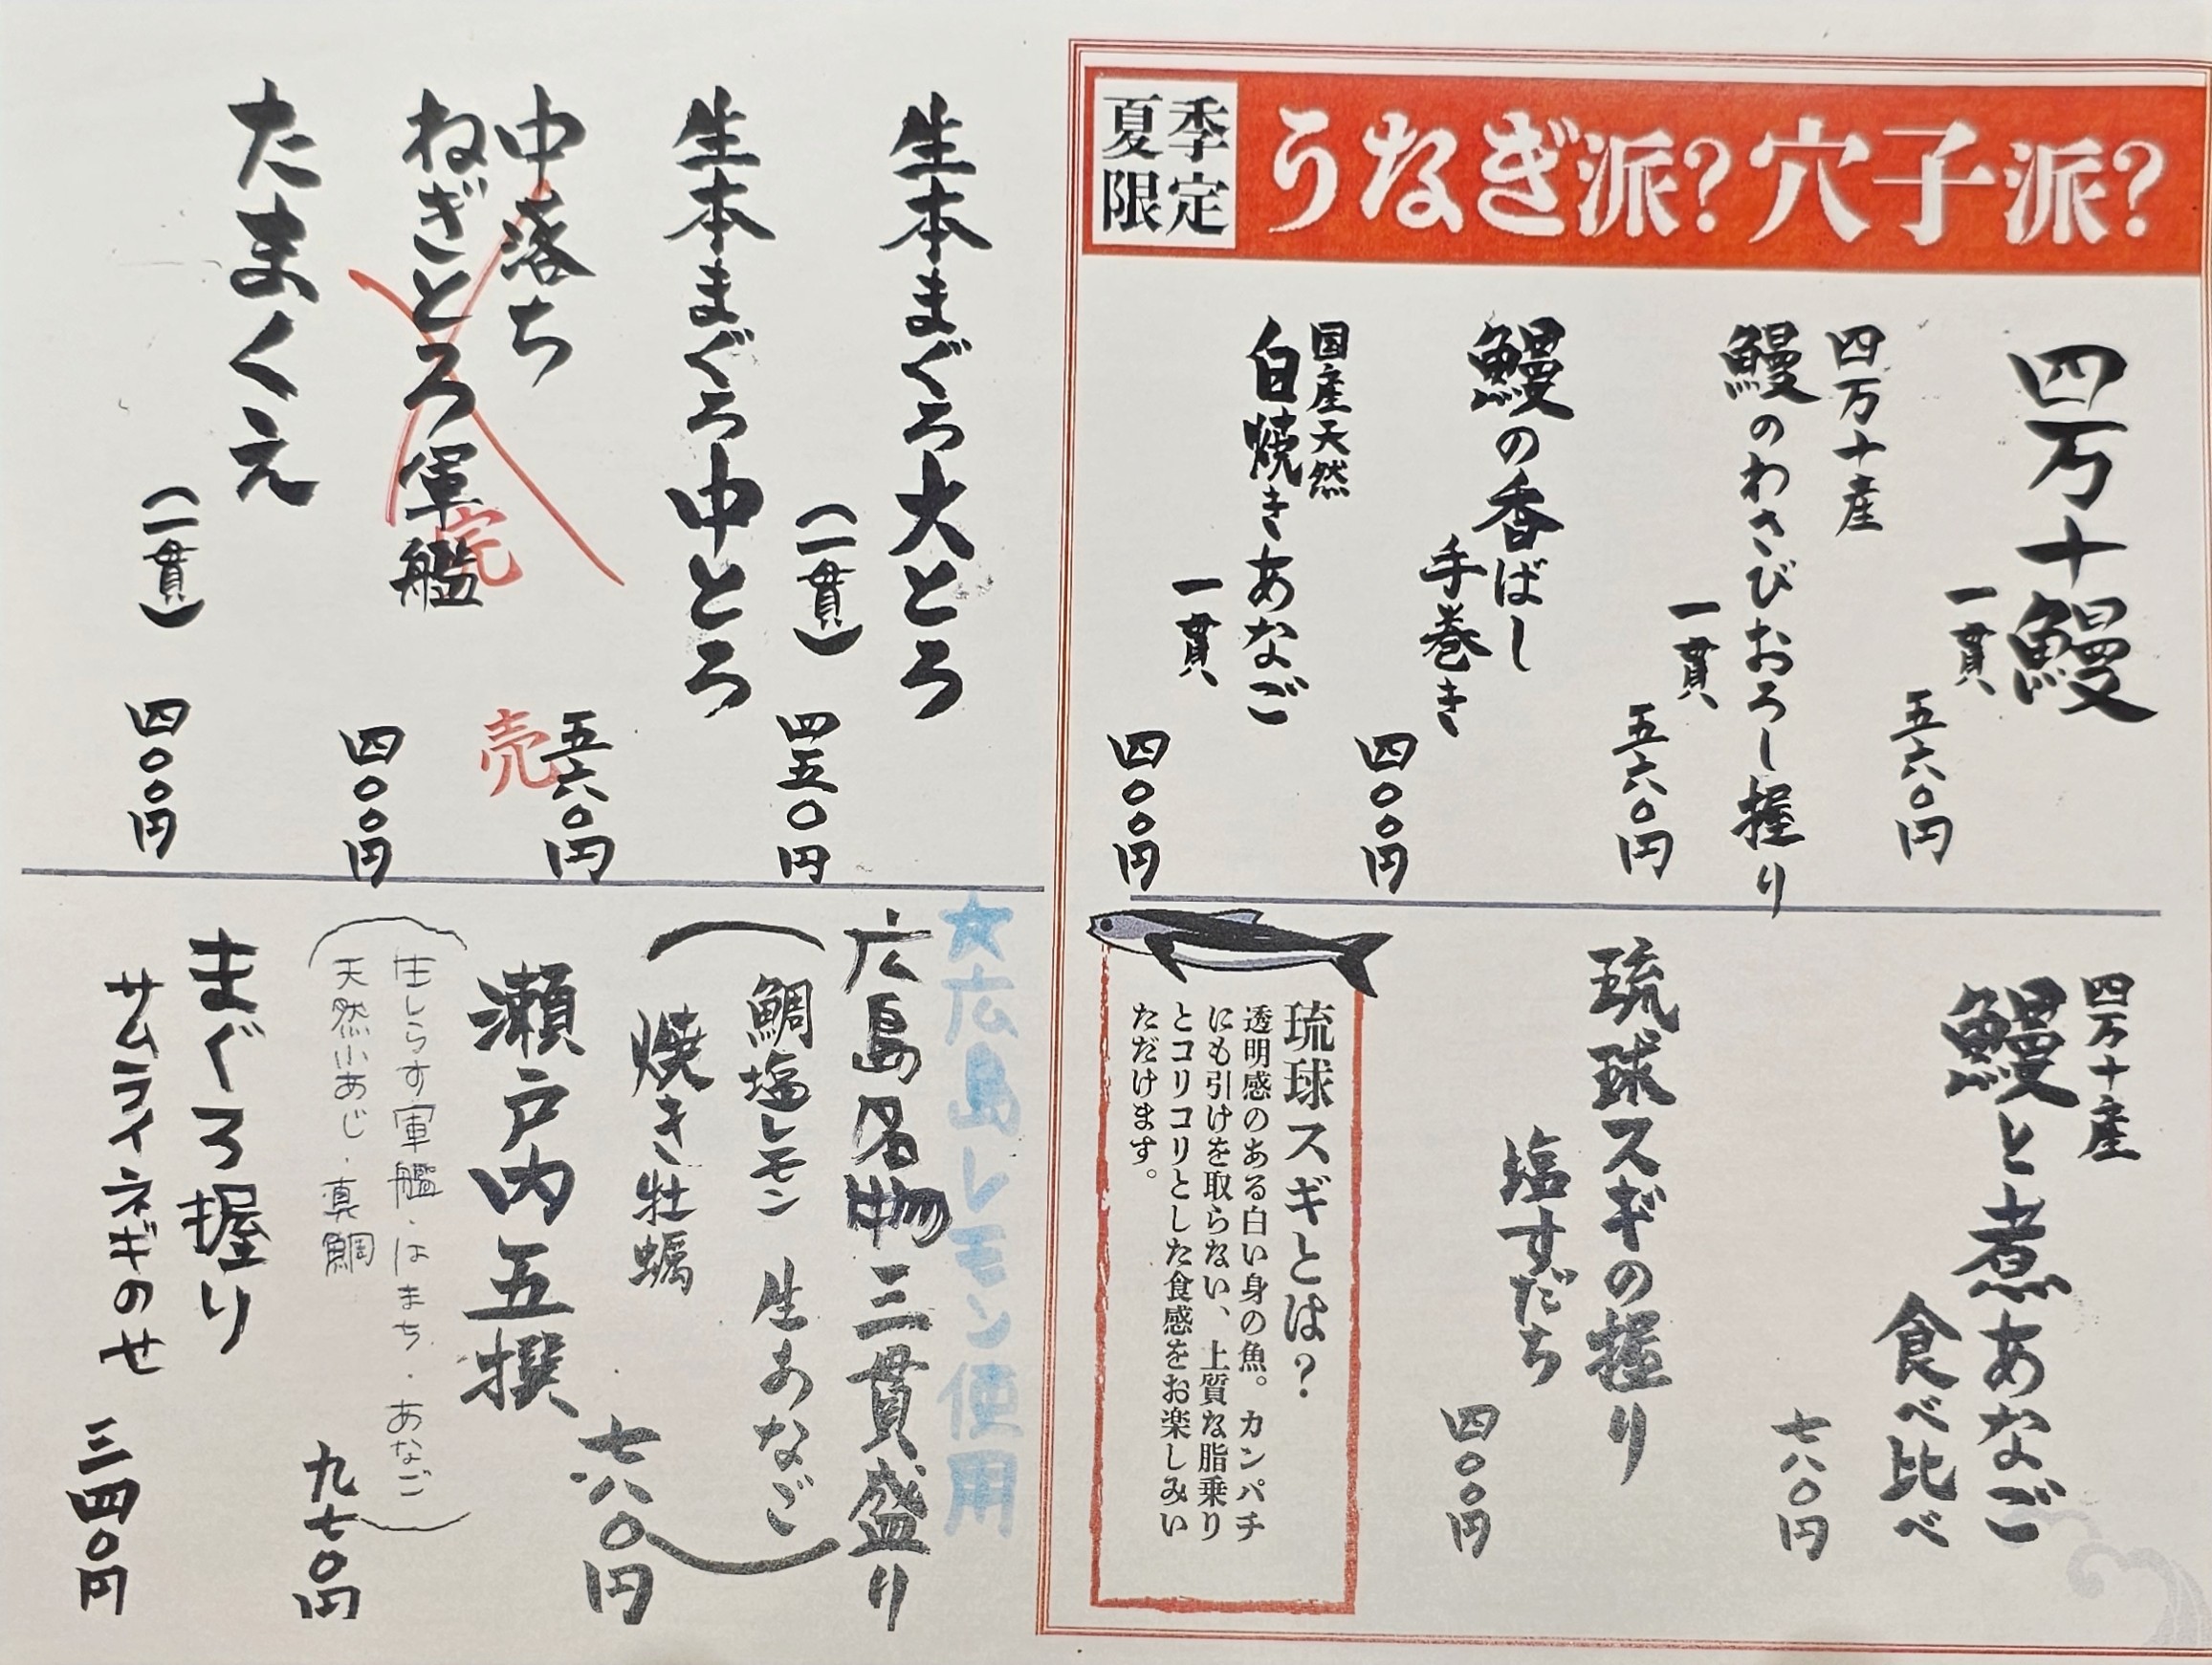 夏季限定
うなぎ派?穴子派?
四万十鰻
一貫
五六〇円
四万十産
鰻のわさびおろし握り
一貫
五六〇円
鰻の香ばし
手巻き
四〇〇円
国産天然
白焼きあなご
一貫
四〇〇円
四万十産
鰻と煮あなご
食べ比べ
七八〇円
琉球スギの握り
塩すだち
四〇〇円
琉球スギとは?
透明感のある白い身の魚。カンパチ
にも引けを取らない、上質な脂乗り
とコリコリとした食感をお楽しみい
ただけます。
生本まぐろ大とろ
(一貫)
四五〇円
生本まぐろ中とろ
五六〇円
中落ち
ねぎとろ軍艦
四〇〇円
完売
たまくえ
(一貫)
四〇〇円
☆広島レモン使用
広島名物三貫盛り
(鯛塩レモン 生あなご
焼き牡蠣)
七八〇円
瀬戸内五撰
(生しらす軍艦・はまち・あなご
天然小あじ・真鯛)
九七〇円
まぐろ握り
サムライネギのせ
三四〇円